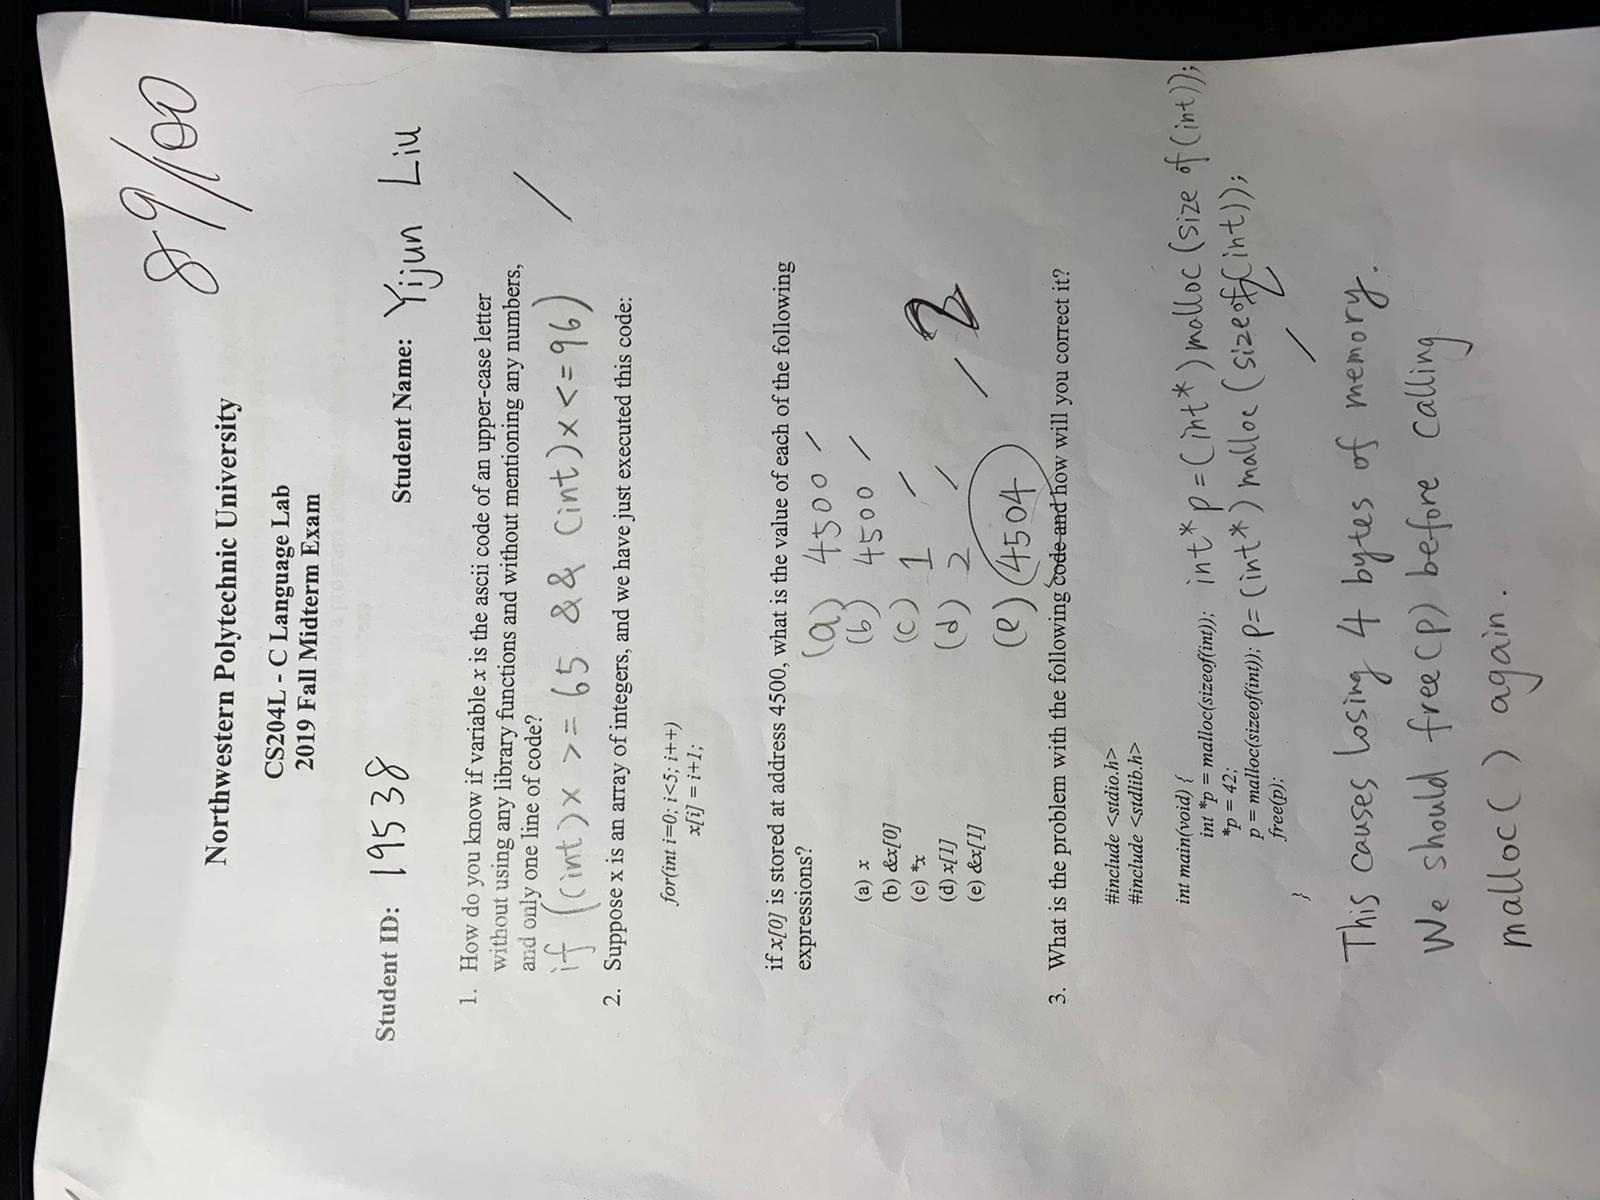 89/100
Northwestern Polytechnic University
CS204L - C Language Lab
2019 Fall Midterm Exam
Student ID: 19538 Student Name: Yijun Liu
1. How do you know if variable x is the ascii code of an upper-case letter
without using any library functions and without mentioning any numbers,
and only one line of code?
if ((int)x >= 65 && (int)x <= 96)
2. Suppose x is an array of integers, and we have just executed this code:
for(int i=0; i<5; i++)
x[i] = i+1;
if x[0] is stored at address 4500, what is the value of each of the following
expressions?
(a) x
(b) &x[0]
(c) *x
(d) x[1]
(e) &x[1]
(a) 4500
(b) 4500
(c) 1
(d) 2
(e) 4504
2
3. What is the problem with the following code and how will you correct it?
#include <stdio.h>
#include <stdlib.h>
int main(void) {
int *p = malloc(sizeof(int)); int* p = (int*) malloc (size of (int));
*p = 42;
p = malloc(sizeof(int)); p = (int*) malloc (sizeof(int));
free(p);
}
This causes losing 4 bytes of memory.
We should free(p) before calling
malloc() again.